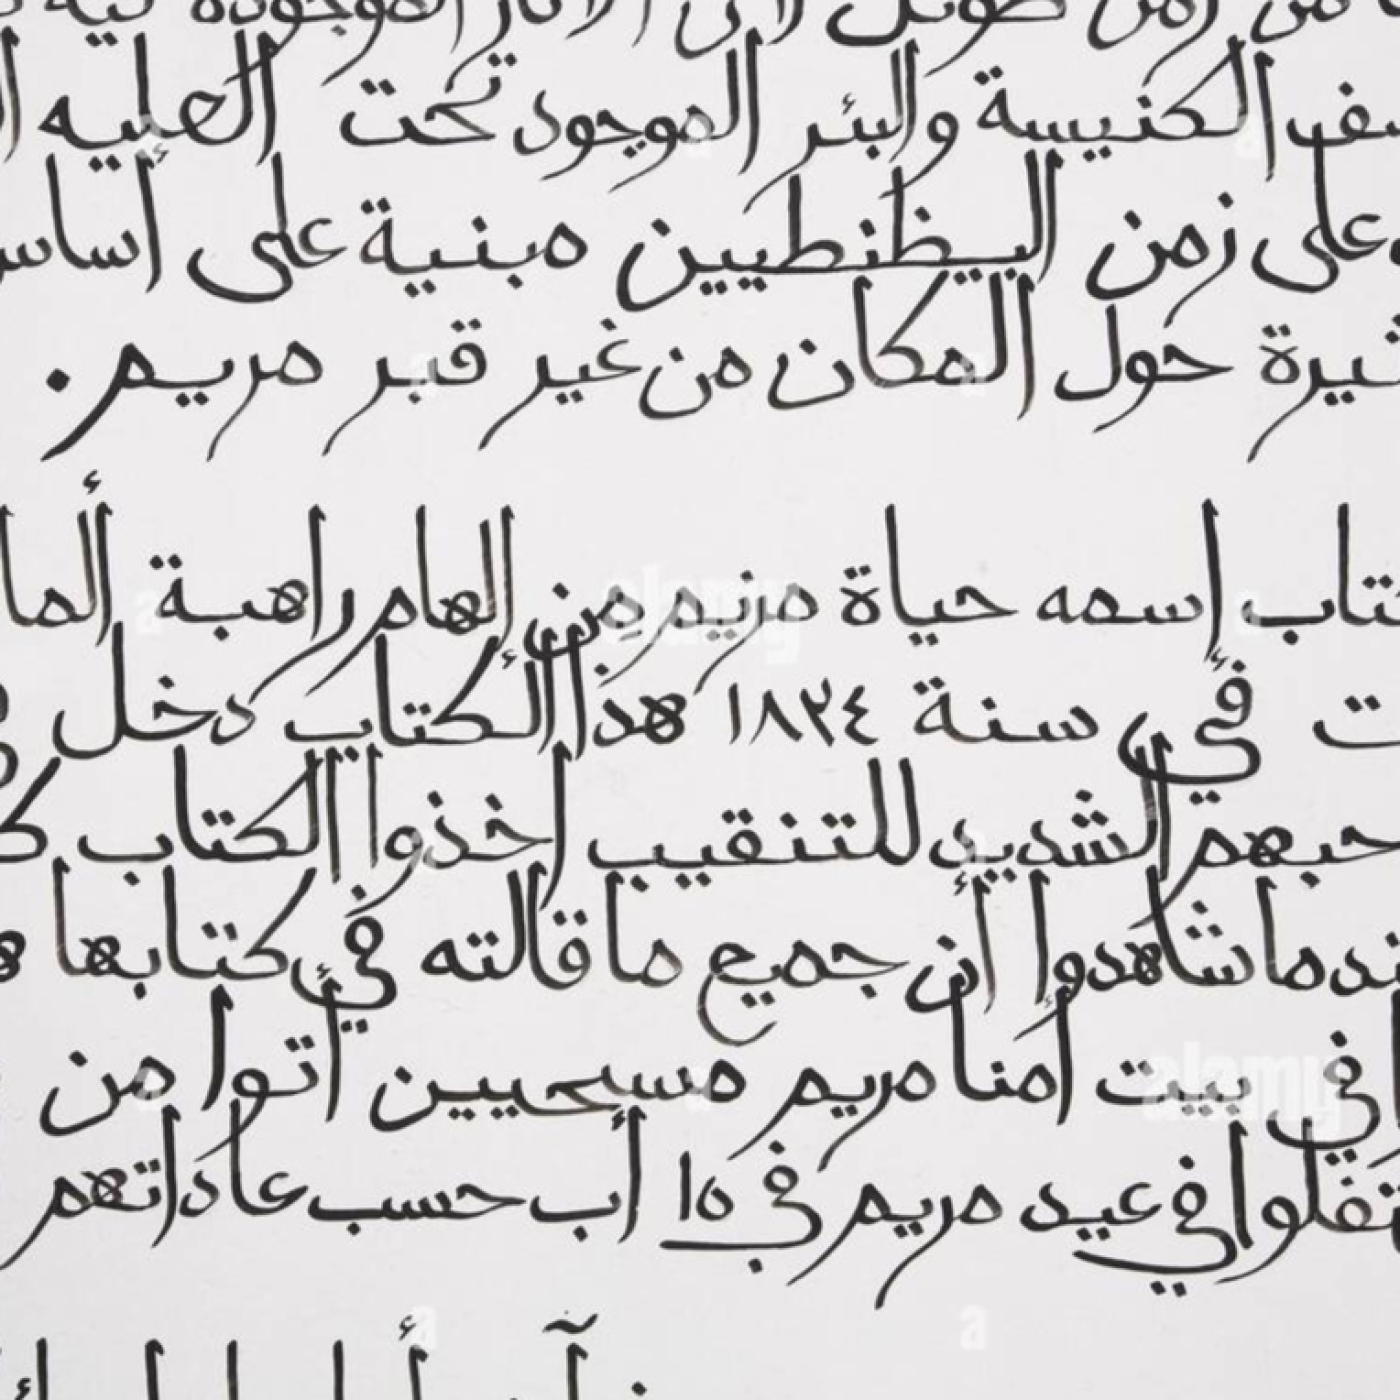 من زمن طويل لأن الآثار الموجودة فيه
الكنيسة والبئر الموجود تحت العليه
على زمن البيظنطيين مبنية على أساس
حول المكان من غير قبر مريم .
إسمه حياة مريم من إلهام راهبة
في سنة ١٨٢٤ هذا الكتاب دخل
حبهم الشديد للتنقيب إخذوا الكتاب
شاهدوا أن جميع ما قالته في كتابها
في بيت أمنا مريم مسحيين أتوا من
في عيد مريم في ١٥ أب حسب عاداتهم